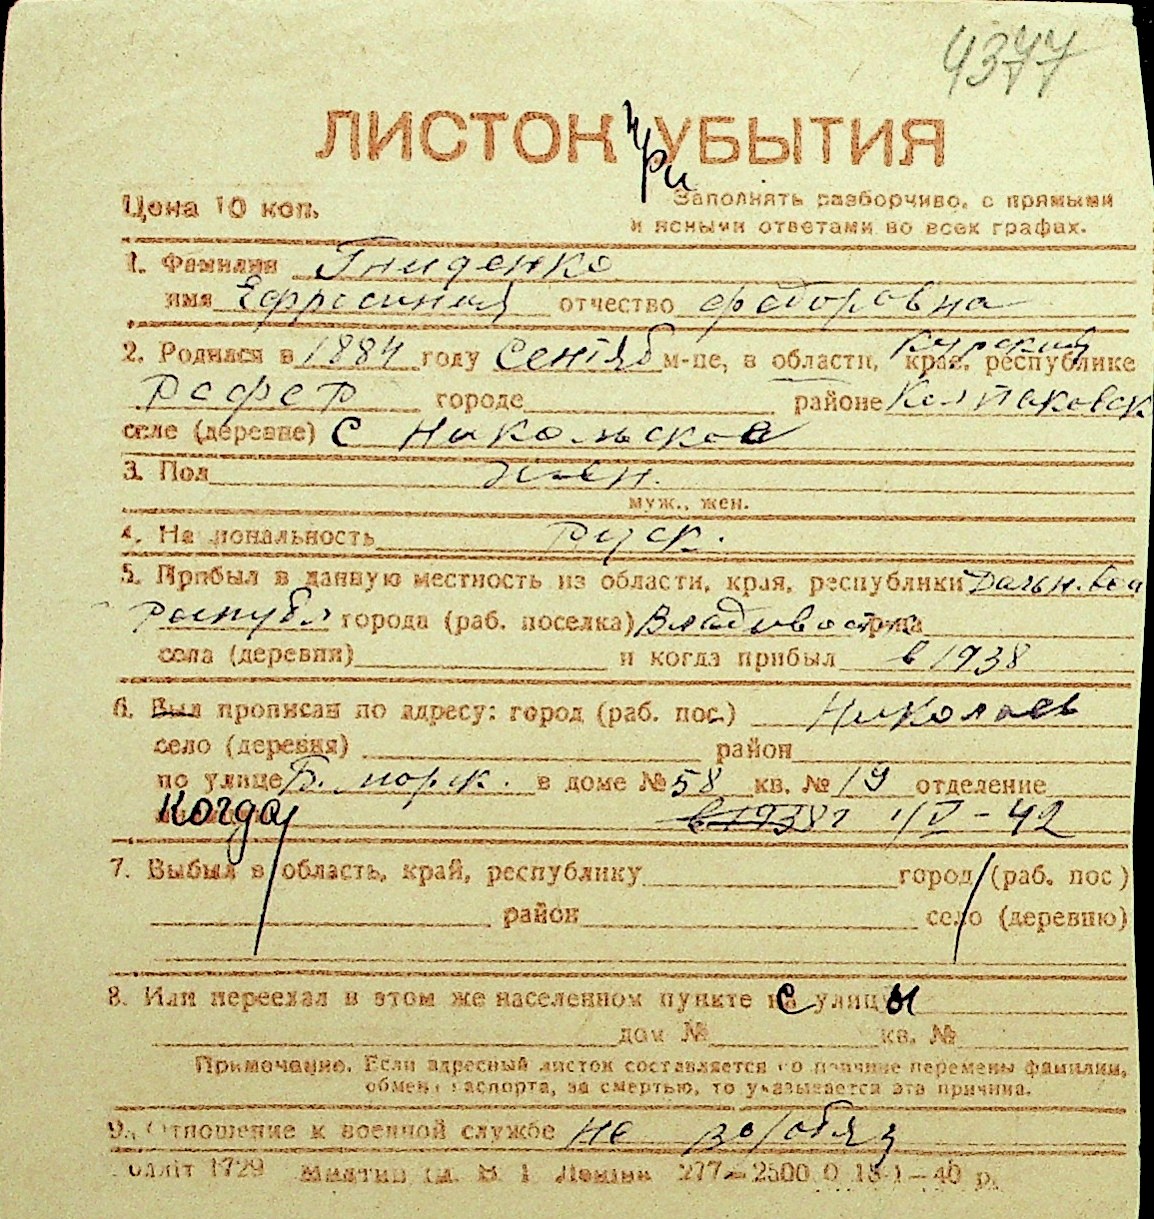 4377
ЛИСТОК УБЫТИЯ
при
Цена 10 коп.
Заполнять разборчиво, с прямыми
и ясными ответами во всех графах.
1. Фамилия Гниденко
имя Ефросиния отчество Федоровна
2. Родился в 1884 году Сентяб м-це, в области, края, республике Курский
РСФСР городе районе Колпаковск
селе (деревне) с Никольское
3. Пол жен.
муж., жен.
4. Национальность Руск.
5. Прибыл в данную местность из области, края, республики Дальн. Вол
Республ города (раб. поселка) Владивосток
села (деревни) и когда прибыл в 1938
6. Был прописан по адресу: город (раб. пос.) Николаев
село (деревня) район
по улице Б. морск. в доме № 58 кв. № 19 отделение
когда в 1938г 1/V-42
7. Выбыл в область, край, республику город (раб. пос)
район село (деревню)
8. Или переехал в этом же населенном пункте с улицы
дом № кв. №
Примечание. Если адресный листок составляется по причине перемены фамилии,
обмена паспорта, за смертью, то указывается эта причина.
9. Отношение к военной службе не в/обяз
1729 Ленина 277—2500 0 18-1—40 р.